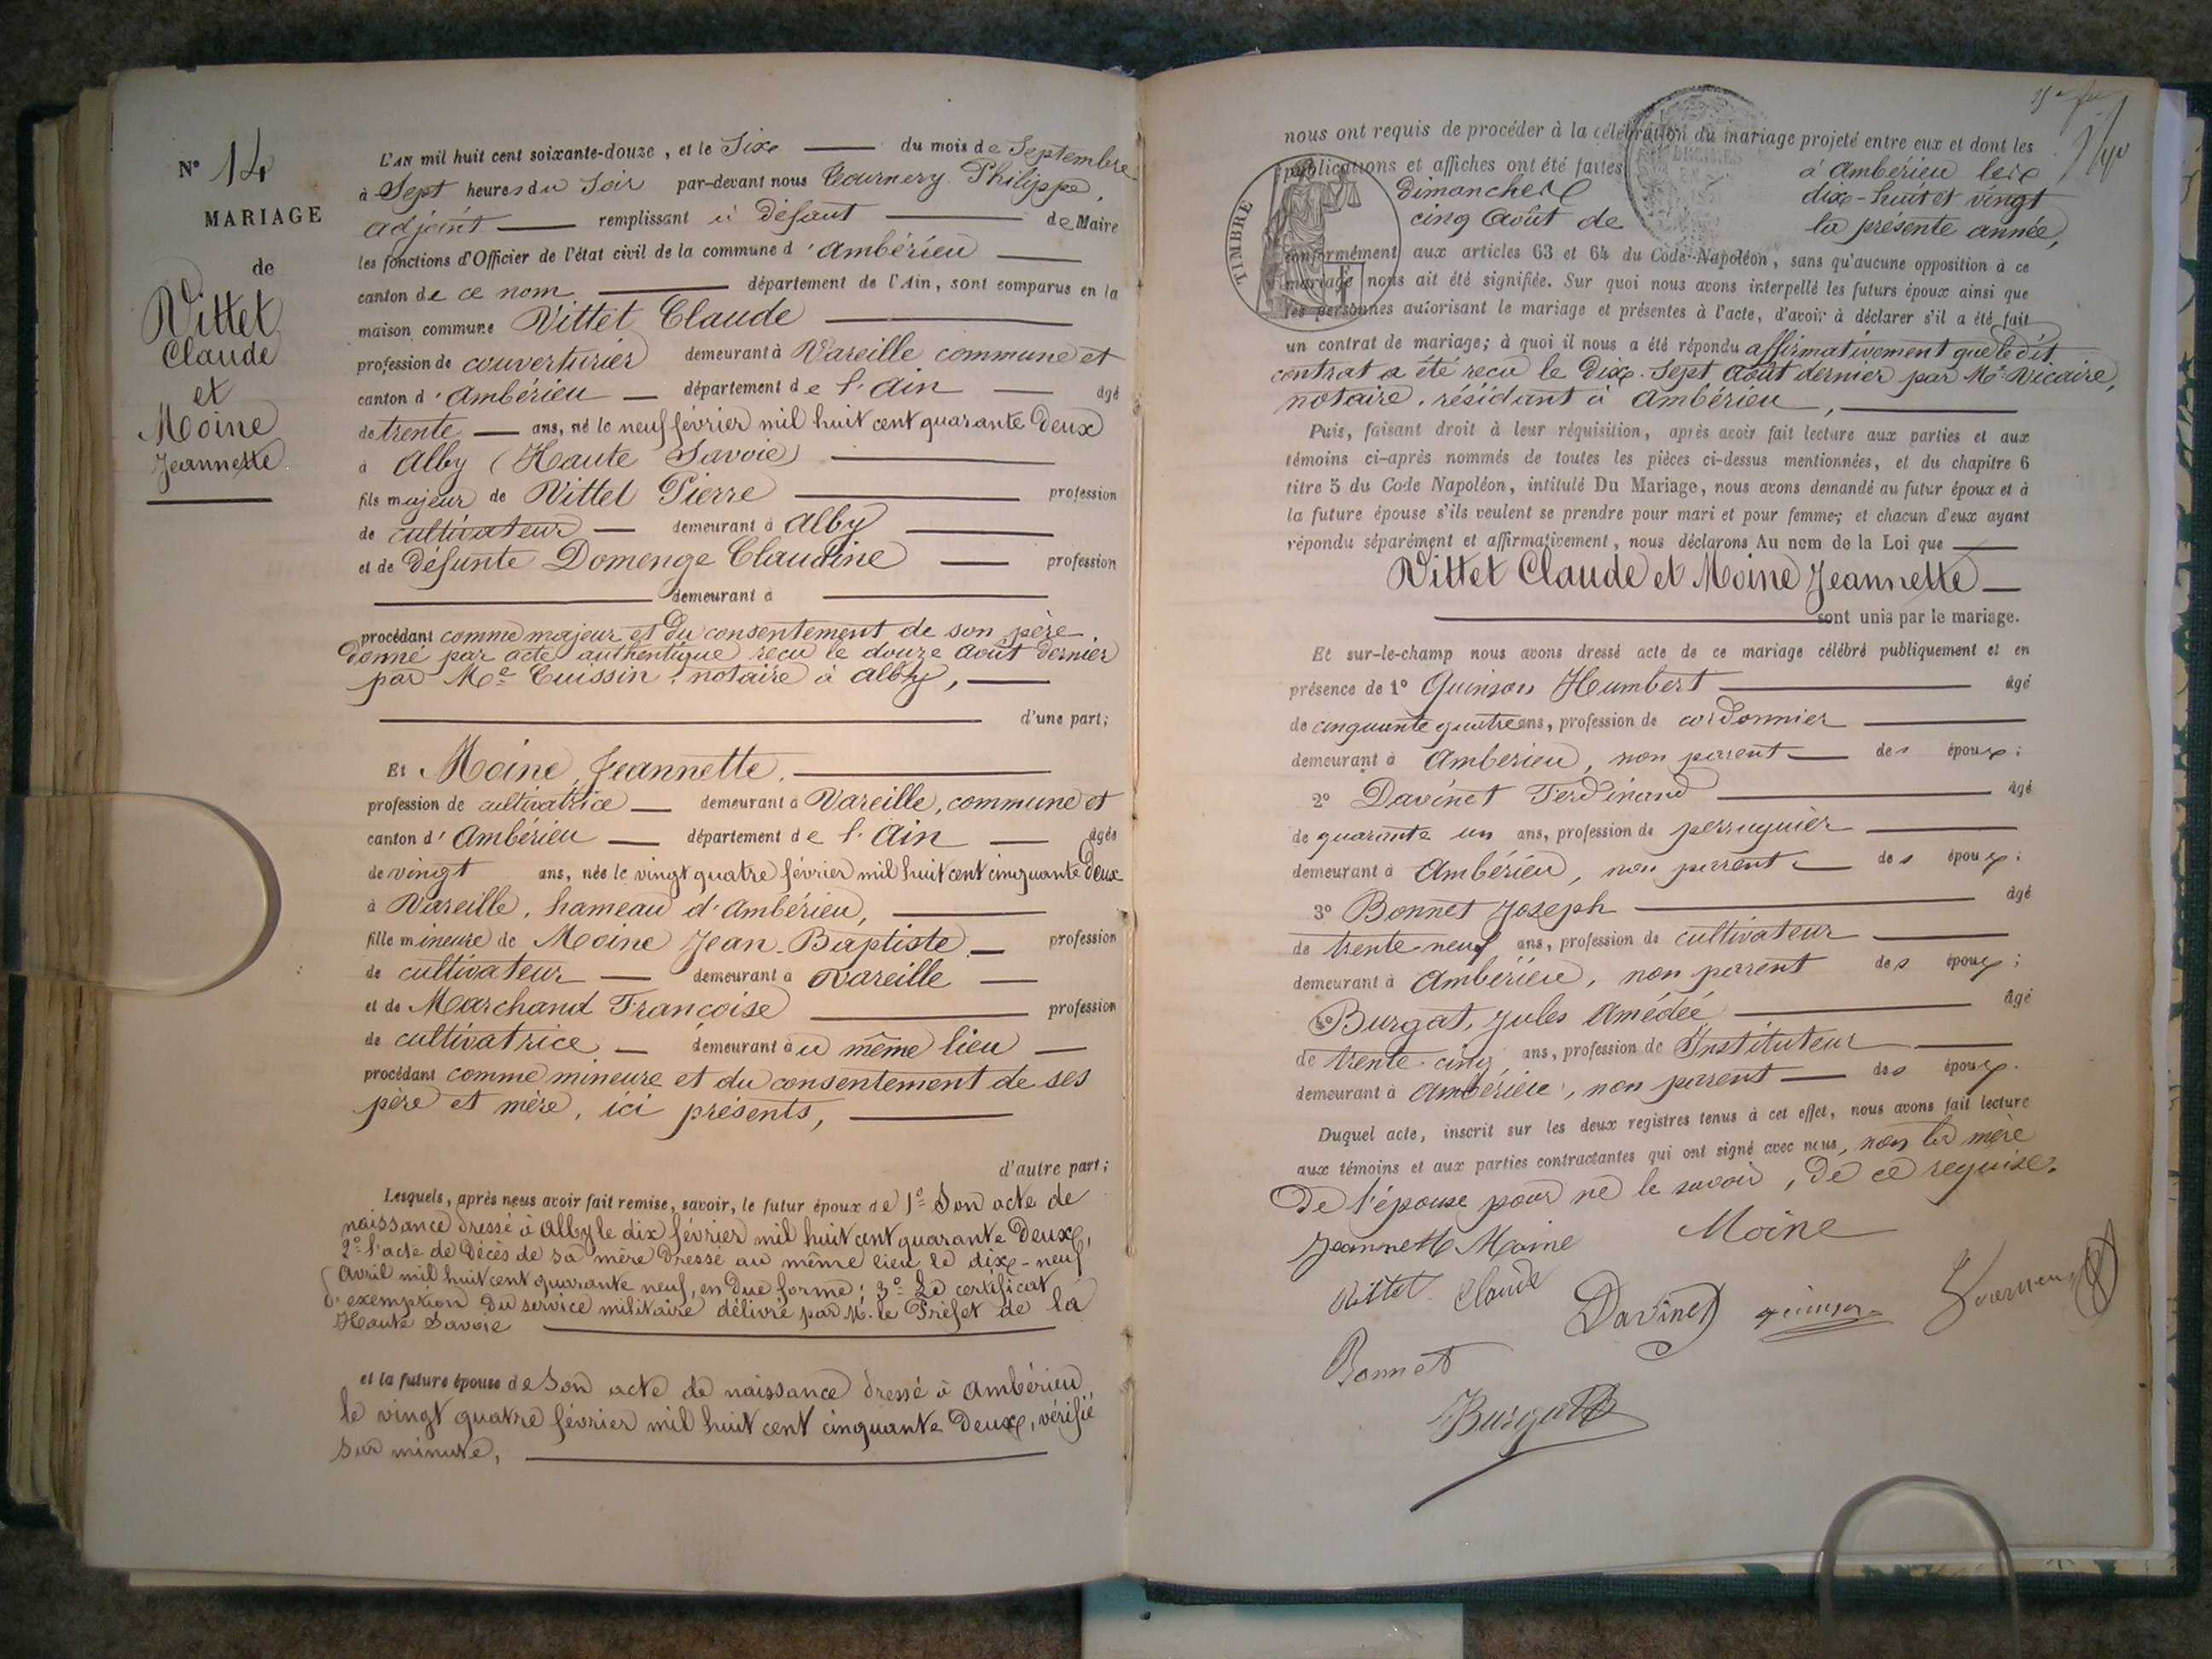 N° 14
MARIAGE
de
Vittet
Claude
et
Moine
Jeannette
L'AN mil huit cent soixante-douze, et le Six du mois de Septembre
à Sept heures du Soir par-devant nous Tournery Philippe,
adjoint remplissant à défaut de Maire
les fonctions d'Officier de l'état civil de la commune d'Ambérieu
canton de ce nom département de l'Ain, sont comparus en la
maison commune Vittet Claude
profession de couverturier demeurant à Vareille commune et
canton d'Ambérieu département de l'Ain âgé
de trente ans, né le neuf février mil huit cent quarante deux
à Alby (Haute Savoie)
fils majeur de Vittet Pierre profession
de cultivateur demeurant à Alby
et de défunte Domenge Claudine profession
demeurant à
procédant comme majeur et du consentement de son père
donné par acte authentique reçu le douze août dernier
par Me Cuissin, notaire à Alby,
d'une part;
Et Moine, Jeannette,
profession de cultivatrice demeurant à Vareille, commune et
canton d'Ambérieu département de l'Ain âgée
de vingt ans, née le vingt quatre février mil huit cent cinquante deux
à Vareille, hameau d'Ambérieu,
fille mineure de Moine Jean-Baptiste profession
de cultivateur demeurant à Vareille
et de Marchand Françoise profession
de cultivatrice demeurant au même lieu
procédant comme mineure et du consentement de ses
père et mère, ici présents,
d'autre part;
Lesquels, après nous avoir fait remise, savoir, le futur époux de 1° Son acte de
naissance dressé à Alby le dix février mil huit cent quarante deux,
2° l'acte de décès de sa mère dressé au même lieu le dix-neuf
avril mil huit cent quarante neuf, en due forme; 3° Le certificat
d'exemption du service militaire délivré par M. le Préfet de la
Haute Savoie
et la future épouse de Son acte de naissance dressé à Ambérieu,
le vingt quatre février mil huit cent cinquante deux, vérifié
sur minute,
nous ont requis de procéder à la célébration du mariage projeté entre eux et dont les
publications et affiches ont été faites à Ambérieu les
dimanches dix-huit et vingt
cinq Août de la présente année,
TIMBRE
conformément aux articles 63 et 64 du Code Napoléon, sans qu'aucune opposition à ce
mariage nous ait été signifiée. Sur quoi nous avons interpellé les futurs époux ainsi que
les personnes autorisant le mariage et présentes à l'acte, d'avoir à déclarer s'il a été fait
un contrat de mariage; à quoi il nous a été répondu affirmativement que le dit
contrat a été reçu le Dix-Sept Août dernier par Me Vicaire,
notaire, résidant à Ambérieu,
Puis, faisant droit à leur réquisition, après avoir fait lecture aux parties et aux
témoins ci-après nommés de toutes les pièces ci-dessus mentionnées, et du chapitre 6
titre 5 du Code Napoléon, intitulé Du Mariage, nous avons demandé au futur époux et à
la future épouse s'ils veulent se prendre pour mari et pour femme; et chacun d'eux ayant
répondu séparément et affirmativement, nous déclarons Au nom de la Loi que
Vittet Claude et Moine Jeannette
sont unis par le mariage.
Et sur-le-champ nous avons dressé acte de ce mariage célébré publiquement et en
présence de 1° Quinson Humbert âgé
de cinquante quatre ans, profession de cordonnier
demeurant à Ambérieu, non parent des époux;
2° Davinet Ferdinand âgé
de quarante un ans, profession de perruquier
demeurant à Ambérieu, non parent des époux;
3° Bonnet Joseph âgé
de trente neuf ans, profession de cultivateur
demeurant à Ambérieu, non parent des époux;
4° Burgat, Jules Amédée âgé
de trente-cinq ans, profession de Instituteur
demeurant à Ambérieu, non parent des époux.
Duquel acte, inscrit sur les deux registres tenus à cet effet, nous avons fait lecture
aux témoins et aux parties contractantes qui ont signé avec nous, non la mère
de l'épouse pour ne le savoir, de ce requise.
Jeannette Moine Moine
Vittet Claude Davinet quinson
Bonnet
Burgat